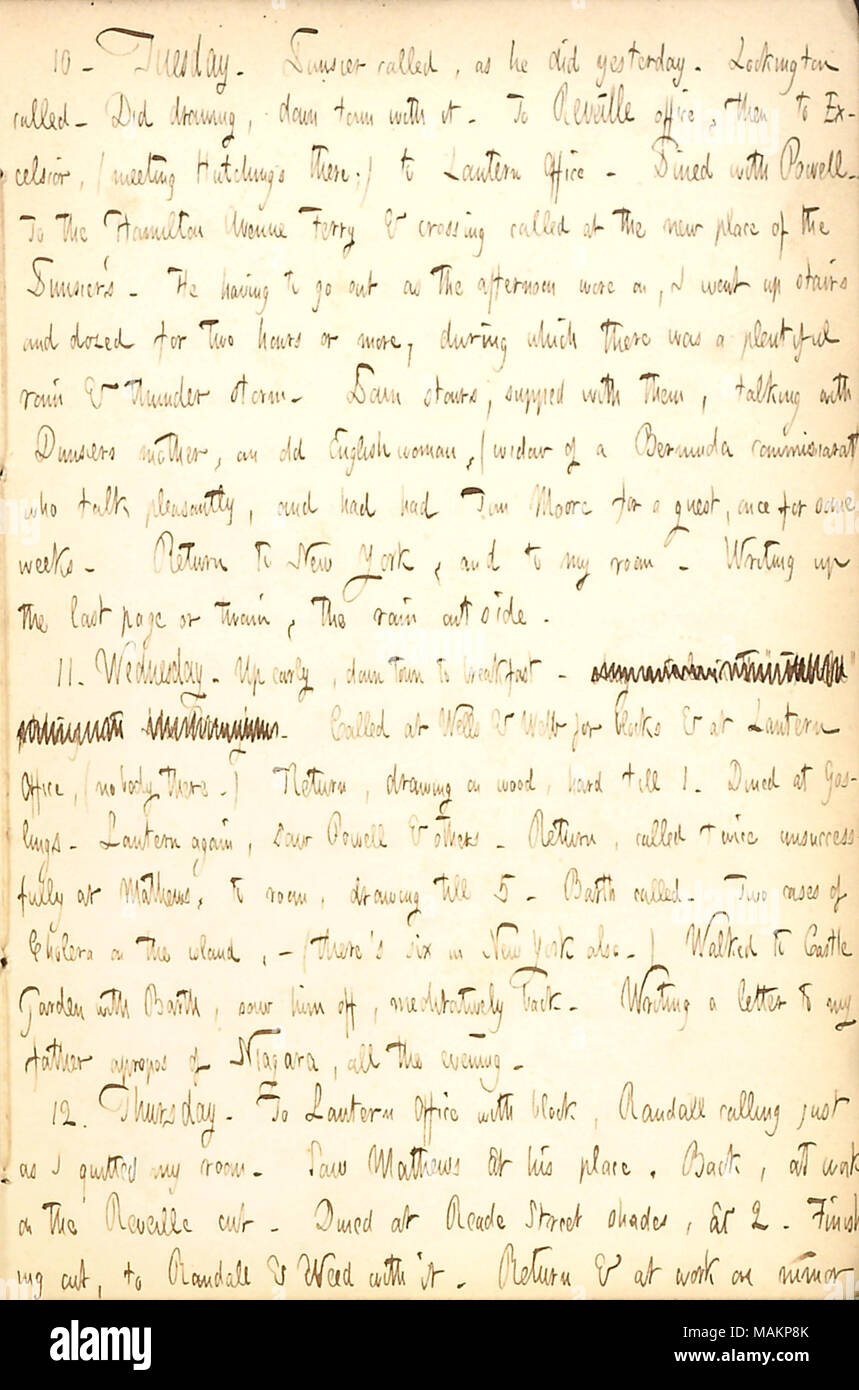 10 - Tuesday. Dunsier called, as he did yesterday. Lockington
called - Did drawing, down town with it. To Reveille office, then to Ex-
celsior, (meeting Hutchings there;) to Lantern Office - Dined with Powell -
To the Hamilton Avenue Ferry & crossing called at the new place of the
Dunsier's - He having to go out as the afternoon wore on, I went up stairs
and dozed for two hours or more, during which there was a plentiful
rain & thunder storm - Down stairs, supped with them, talking with
Dunsiers mother, an old English woman, (widow of a Bermuda commissariat
who talk pleasantly, and had had Tom Moore for a guest, once for some
weeks - Return to New York, and to my room - Writing up
the last page or twain, the rain out side.
11. Wednesday - Up early, down town to breakfast -
Called at Wells & Webb for blocks & at Lantern
Office, (nobody there.) Return, drawing on wood, hard till 1. Dined at Gos-
lings - Lantern again, saw Powell & others - Return, called twice unsuccess-
fully at Mathews, to room, drawing till 5 - Barth called - Two cases of
Cholera on the island, - (there's six in New York also.) Walked to Castle
Garden with Barth, saw him off, meditatively back - Writing a letter to my
father apropos of Niagara, all the evening -
12. Thursday - To Lantern Office with block, Randall calling just
as I quitted my room - Saw Mathews at his place. Back, at work
on the Reveille cut - Dined at Reade Street shades, at 2 - Finish
ing cut, to Randall & Weed with it - Return & at work on minor
alamy
Image ID: MAKP8K
www.alamy.com